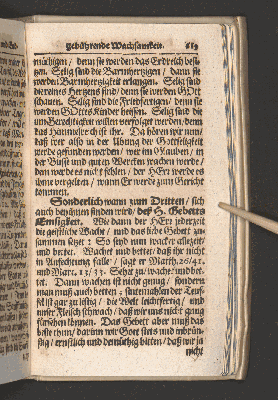 gebührende Wachsamkeit. 619
müthigen / denn sie werden das Erdreich besi-
tzen. Selig sind die Barmhertzigen / dann sie
werden Barmhertzigkeit erlangen. Selig sind
die reines Hertzens sind / denn sie werden GOtt
schauen. Selig sind die Friedfertigen / denn sie
werden GOttes Kinder heissen. Selig sind die
um Gerechtigkeit willen verfolget werden / denn
das Himmelreich ist ihr. Da hören wir nun /
daß wer also in der Übung der Gottseligkeit
werde gefunden werden / wer im Glauben / in
der Busse und guten Wercken wachen werde /
dem werde es nicht fehlen / der HErr werde es
ihme vergelten / wann Er werde zum Gericht
kommen.
Sonderlich wann zum Dritten / sich
auch bey uns finden wird / deß H. Gebetts
Emsigkeit. Wie dann der HErr jederzeit
die geistliche Wacht / und das liebe Gebett zu-
sammen setzet: So seyd nun wacker allezeit/
und betet. Wachet und bettet / daß ihr nicht
in Anfechtung falle / sagt er Matth. 26/41.
und Marc. 13/33. Sehet zu / wachet und bet-
tet. Dann wachen ist nicht genug / sondern
man muß auch betten; sintemahlen der Teuf-
fel ist gar zu listig / die Welt leichtfertig / und
unser Fleisch schwach / daß wir uns nicht gnug
fürsehen können. Das Gebett aber muß das
beste thun / darum wir Gott stets und inbrün-
stig / ernstlich und demüthig bitten / daß wir ja
nicht